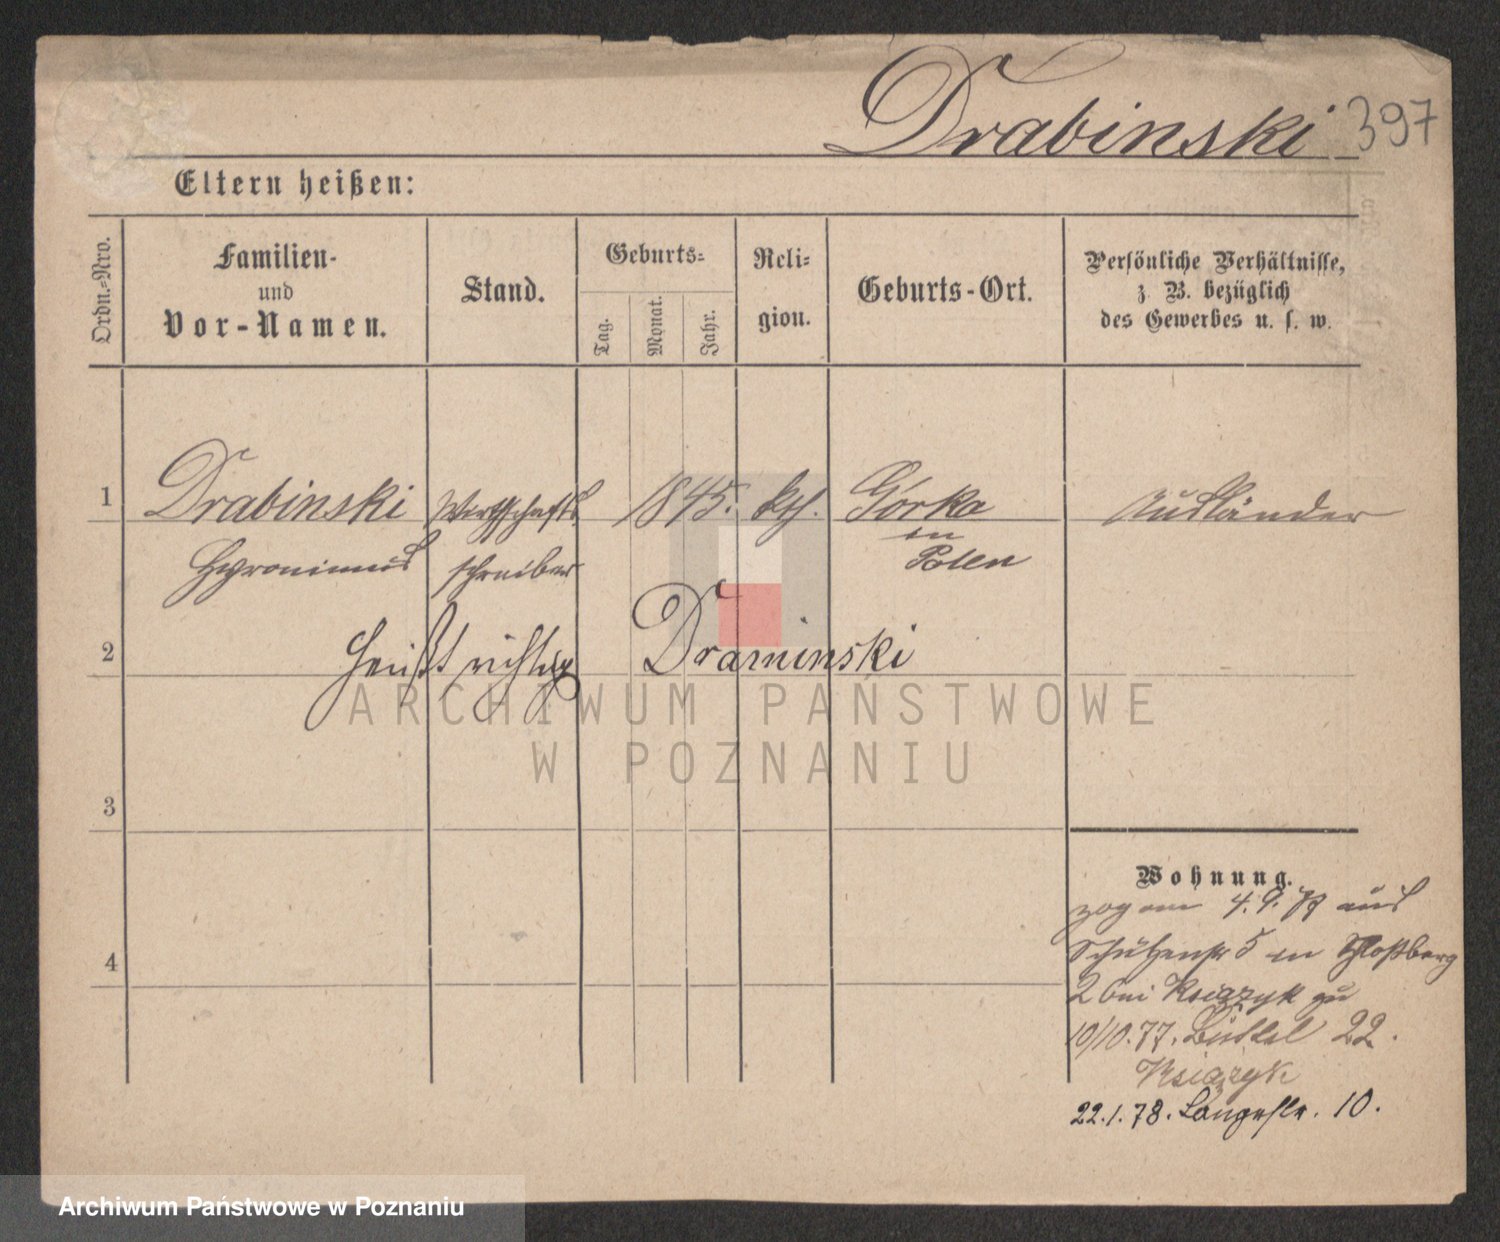 Drabinski 397
Eltern heißen:
Ordn.-Nro.
Familien-
und
Vor-Namen.
Stand.
Geburts-
Tag.
Monat.
Jahr.
Reli-
gion.
Geburts-Ort.
Persönliche Verhältnisse,
z. B. bezüglich
des Gewerbes u. s. w.
1 Drabinski Wirthschafts 1845. kth. Górka Ausländer
in
Hyronimus schreiber Polen
2 heißt richtig Draminski
3
4
Wohnung.
zog am 4. 9. 77 aus
Schützenstr 5 in Schloßberg
2 bei Książyk zu
10/10. 77. Büttel 22.
Książyk
22.1.78. Langestr. 10.
ARCHIWUM PAŃSTWOWE
W POZNANIU
Archiwum Państwowe w Poznaniu